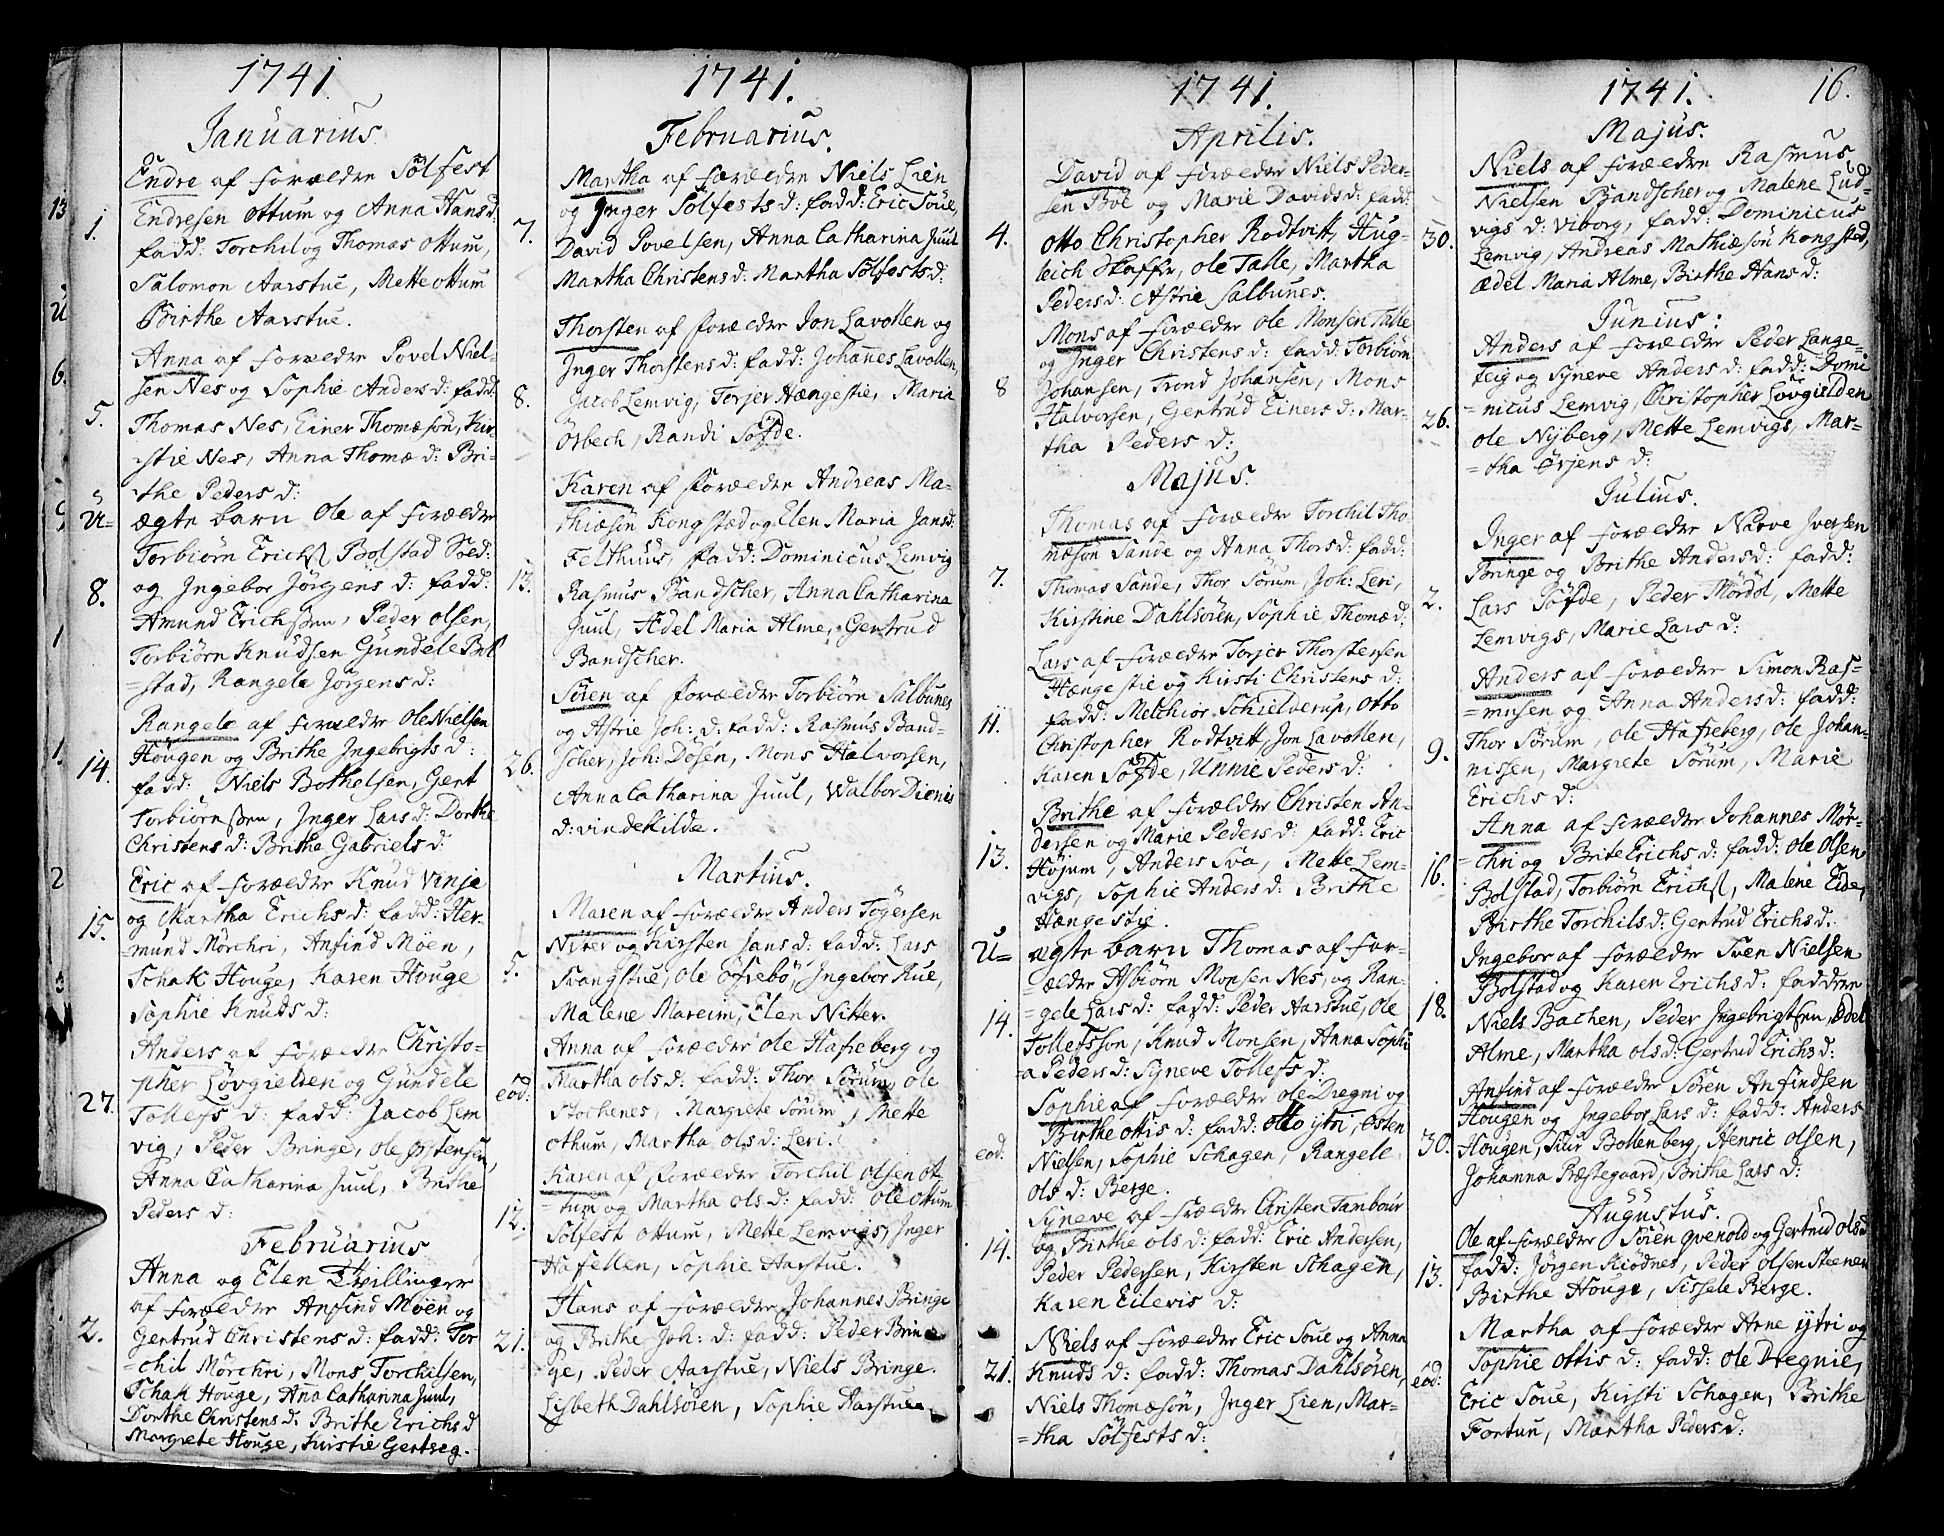 1741
Januarius
Endre af forældre Sølfest
1. Endresen Ottum og Anna Hans d:
fadd: Torchil og Thomas Ottum,
Salomon Aarstue, Mette Ottum
Birthe Aarstue.
Anna af forældre Povel Niel-
sen Nes og Sophie Anders d: fadd:
5. Thomas Nes, Einer Thomæsøn, Kir-
stie Nes, Anna Thomæ d: Bri-
the Peders d:
U= ægte barn Ole af forældre
Torbiørn Erichs Bolstad Sold:
8. og Ingebor Jørgens d: fadd:
Amund Erichssen, Peder Olsen,
Torbiørn Knudsen Gundele Bol
=stad, Rangele Jørgens d:
Rangele af forældre Ole Nielsen
14. Hougen og Brithe Ingebrigts d:
fadd: Niels Bothelsen, Gert
Torbiørnssen, Inger Lars d: Dorthe
Christens d: Brithe Gabriels d:
Eric af forældre Knud Vinje
15. og Martha Erichs d: fadd: Her-
=mund Mørchri, Anfind Møen,
Schak Houge, Karen Houge
Sophie Knuds d:
Anders af forældre Christo-
pher Løvgielden og Gundele
27. Tollefs d: fadd: Jacob Lem
vig, Peder Bringe, Ole Østensen,
Anna Catharina Juul, Brithe
Peders d:
Februarius
Anna og Elen Tvillinger
af forældre Anfind Møen og
2. Gertrud Christens d: fadd: Tor
=chil Mørchri, Mons Torchilsen,
Schak Houge, Ana Catharina Juul,
Dorthe Christens d: Brithe Erichs d
Margrete Houge, Kirstie Gertseg.
1741.
Februarius.
Martha af forældre Niels Lien
og Inger Sølfests d: fadd: Eric Soue,
7. David Povelsen, Anna Catharina Juul
Martha Christens d: Martha Sølfests d:
Thorsten af forældre Jon Lavollen og
Inger Thorstens d: fadd: Johannes Lavollen,
8. Jacob Lemvig, Torjer Hængestie, Maria
Ørbech, Randi Sofde.
Karen af forældre Andreas Ma-
thiæsøn Kongstad og Elen Maria Jans d:
Felthuus, fadd: Dominicus Lemvig
13. Rasmus Bandscher, Anna Catharina
Juul, Ædel Maria Alme, Gertrud
Bandscher.
Søren af forældre Torbiørn Salbunes
og Astrie Joh: d: fadd: Rasmus Band-
26. scher, Joh: Døsen, Mons Halvorsen,
Anna Catharina Juul, Walbor Dienis
d: Vindekilde.
Martius.
Maren af forældre Anders Tøgersen
Niter og Kirsten Jans d: fadd: Lars
5. Svangstue, Ole Øfrebø, Ingebor Rue,
Malene Mareim, Elen Nitter.
Anna af forældre Ole Hafreberg og
eod: Martha Ols d: fadd: Thor Sørum, Ole
Stochenes, Margrete Sørum, Mette
Othum, Martha Ols d: Leri.
Karen af forældre Torchil Olsen Ot
12. =tum og Martha Ols d: fadd: Ole Ottum
Solfest Ottum, Mette Lemvigs, Inger
Hafellen, Sophie Aarstue.
Hans af forældre Johannes Bringe
21. og Brithe Joh: d: fadd: Peder Brin
ge, Peder Aarstue, Niels Bringe.
Lisbeth Dahlsøren, Sophie Aarstue.
1741.
Aprilis.
David af forældre Niels Peder-
sen Boe og Marie Davids d: fadd:
4. Otto Christopher Rodtvitt, Hug-
leich Skaffer, Ole Talle, Martha
Peders d: Astrie Salbunes.
Mons af forældre Ole Monsen Talle
og Inger Christens d: fadd: Torbiørn
8 Johansen, Trond Johansen, Mons
Halvorsen, Gertrud Einers d: Mar-
tha Peders d:
Majus.
Thomas af forældre Torchil Tho
mæsøn Sande og Anna Thors d: fadd:
7. Thomas Sande, Thor Sørum, Joh: Leri,
Kirstine Dahlsøren, Sophie Thomæ d:
Lars af forældre Torjer Thorstensen
Hængestie og Kirsti Christens d:
11. fadd: Melchior Schielderup, Otto
Christopher Rodtvitt, Jon Lavollen,
Karen Sofde, Unnie Peders d:
Brithe af forældre Christen An-
dersen og Marie Peders d: fadd: Eric
13. Højum, Anders Sva, Mette Lem-
vigs, Sophie Anders d: Brithe
Hængestie
U= ægte barn Thomas af for-
=ældre Asbiørn Monsen Nes, og Ran-
14. =gele Lars d: fadd: Peder Aarstue, Ole
Tollefsson, Knud Monsen, Anna Sophi
a Peders d: Syneve Tollefs d:
Sophie af forældre Ole Dregni og
Birthe Ottis d: fadd: Otto ytri, Østen
eod: Nielsen, Sophie Schagen, Rangele
Ols d: Berge.
Syneve af forældre Christen Tambour
14. og Birthe Ols d: fadd: Eric Andersen,
Peder Pedersen, Kirsten Schagen,
Karen Eilevis d:
Niels af forældre Eric Soue og Anna
21. Knuds d: fadd: Thomas Dahlsøren,
Niels Thomæsøn, Inger Lien, Mar-
=tha Sølfests d:
1741. 16.
Majus.
Niels af forældre Rasmus
Nielsen Bandscher og Malene Lud-
30. vigs d: Viborg, fadd: Dominicus
Lemvig, Andreas Mathiæsøn Kongsted,
Ædel Maria Alme, Birthe Hans d:
Junius:
Anders af forældre Peder Lange-
teig og Syneve Anders d: fadd: Domi
26. =nicus Lemvig, Christopher Løvgielden
Ole Nyberg, Mette Lemvigs, Mar-
=tha Ørjens d:
Julius.
Inger af forældre Nirve Iversen
Bringe og Brithe Anders d: fadd:
2. Lars Søfde, Peder Mørdøl, Mette
Lemvigs, Marie Lars d:
Anders af forældre Simon Ras-
=musen og Anna Anders d: fadd:
9. Thor Sørum, Ole Hafreberg, Ole Johan-
nissen, Margrete Sørum, Marie
Erichs d:
Anna af forældre Johannes Mør-
16. =chri og Brite Erichs d: fadd: Ole Olsen
Bolstad, Torbiørn Erichs, Malene Eide,
Birthe Torchils d: Gertrud Erichs d:
Ingebor af forældre Sven Nielsen
18. Bolstad og Karen Erichs d: faddren
Niels Bachen, Peder Ingebrigtsen, Ædel
Alme, Martha Ols d: Gertrud Erichs d:
Anfind af forældre Søren Anfindsen
Hougen og Ingebor Lars d: fadd: Anders
30. Hougen, Siur Bollenberg, Henric Olsen,
Johanna Præstegaard, Brithe Lars d:
Augustus.
Ole af forældre Søren Qvenold og Gertrud Ols d
13. fadd: Jørgen Kiødnes, Peder Olsen Steenen
Birthe Houge, Sissele Berge.
Martha af forældre Arne ytri og
eod: Sophie Ottis d: fadd: Ole Dregnie,
Eric Soue, Kirsti Schagen, Brithe
Fortun, Martha Peders d: